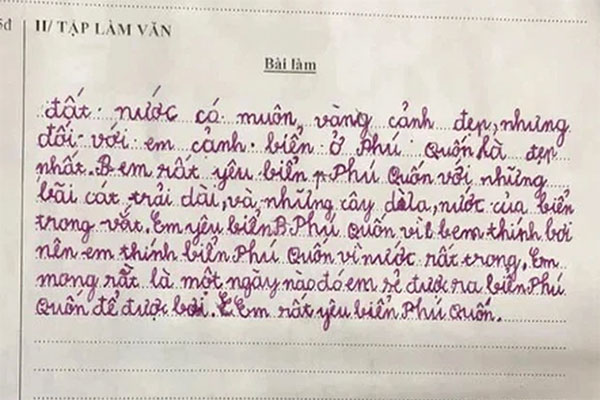 5đ
II/ TẬP LÀM VĂN
Bài làm
đất nước có muôn vàng cảnh đẹp, nhưng
đối với em cảnh biển ở Phú Quốn là đẹp
nhất. B em rất yêu biển p Phú Quốn với những
bãi cát trải dài, và những cây dừa, nước của biển
trong vắt. Em yêu biển B Phú Quốn vì b em thính bơi
nên em thính biển Phú Quốn vì nước rất trong. Em
mong rằt là một ngày nào đó em sẻ được ra biển Phú
Quốn để được bơi. E Em rất yêu biển Phú Quốn.